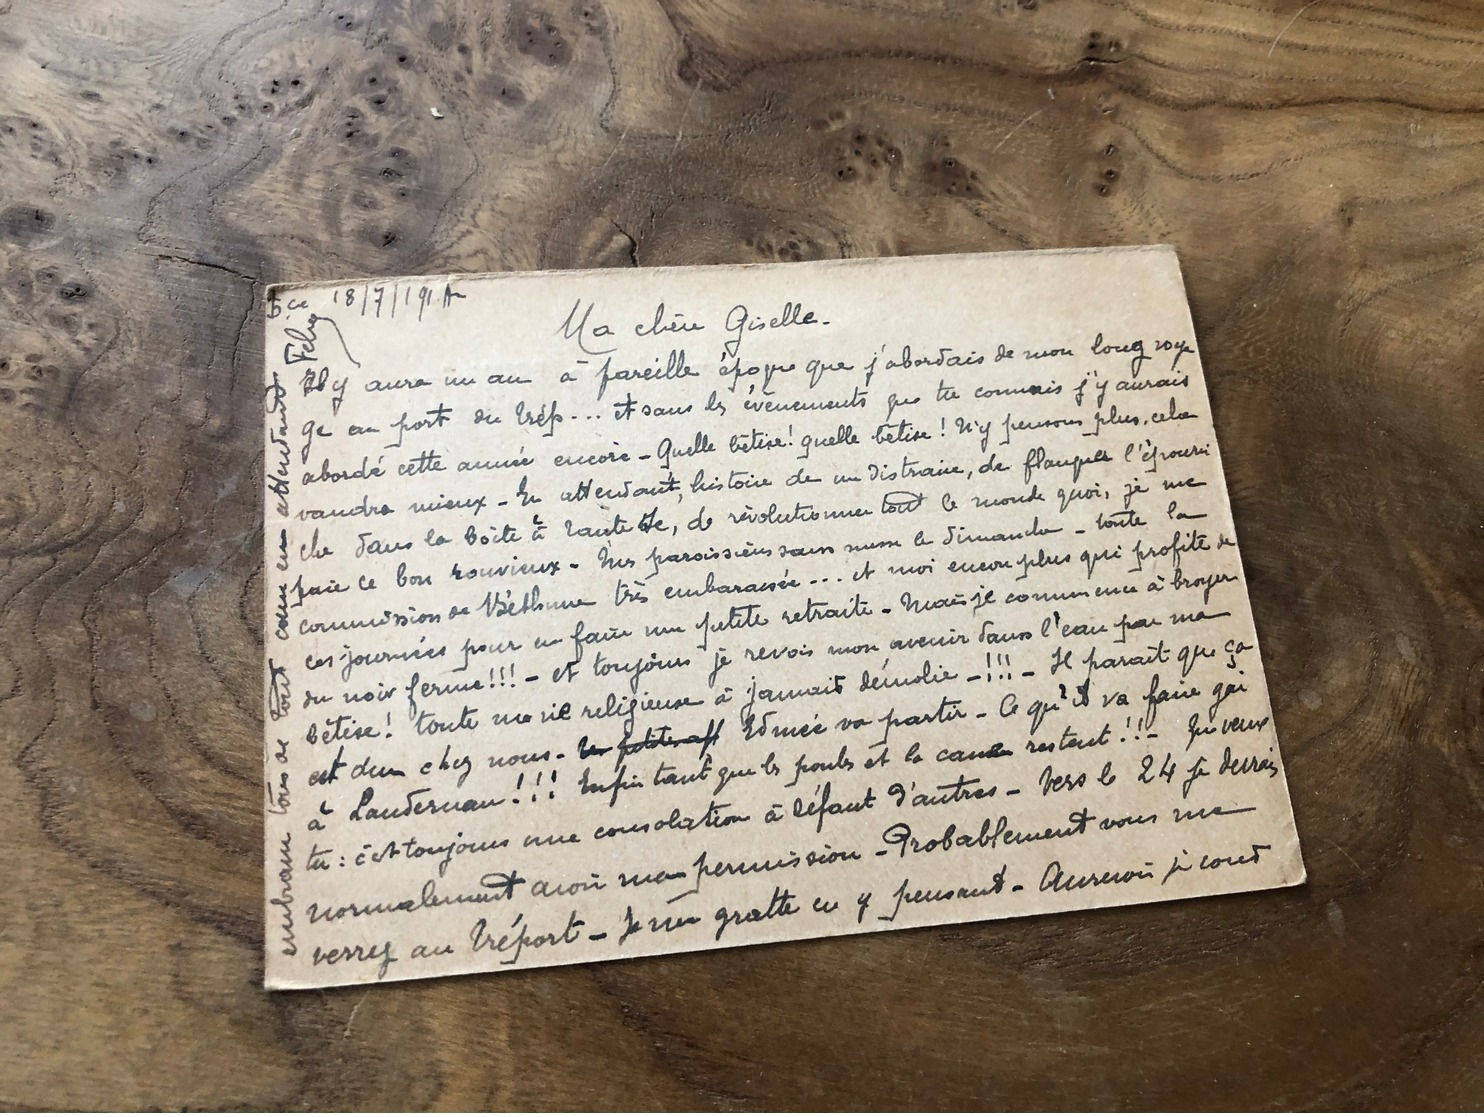 ce 18/7/191
Ma chère Giselle.
Il y aura un an à pareille époque que j'abordais de mon long voya
ge au port du Trép... et sans les évènements que tu connais j'y aurais
abordé cette année encore - Quelle bêtise! quelle bêtise! N'y pensons plus, cela
vaudra mieux - En attendant, histoire de me distraire, de flanquer l'épouvan
che dans la boîte à de révolutionner tout le monde quoi, je me
paie ce bon rouvieux - Mes paroissiens sans messe le dimanche - toute la
commission de Béthune très embarassée... et moi encore plus qui profite de
ces journées pour en faire une petite retraite - Mais je commence à broyer
du noir ferme!!! - et toujours je revois mon avenir dans l'eau par ma
bêtise! toute ma vie religieuse à jamais démolie -!!! - Il parait que ça
est dur chez nous - Edmée va partir - Ce qu'il va faire gai
à Landernau!!! Enfin tant que les poules et la cane restent!!! - Que veux
tu: c'est toujours une consolation à défaut d'autres - Vers le 24 je devrais
normalement avoir ma permission - Probablement vous me
verrez au Tréport - Je me gratte en y pensant - Aurevoir je vous
embrasse tous de tout cœur en attendant